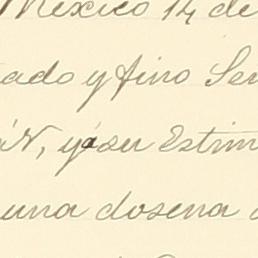 Mexico 14 de
tado y fino Ser
V, y á su Estim
una dosena